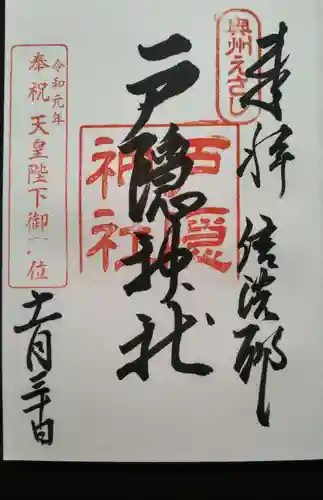 奥州えさし
奉拝 信濃郷
戸隠神社
戸隠
神社
令和元年
奉祝 天皇陛下御 位
十一月三十日